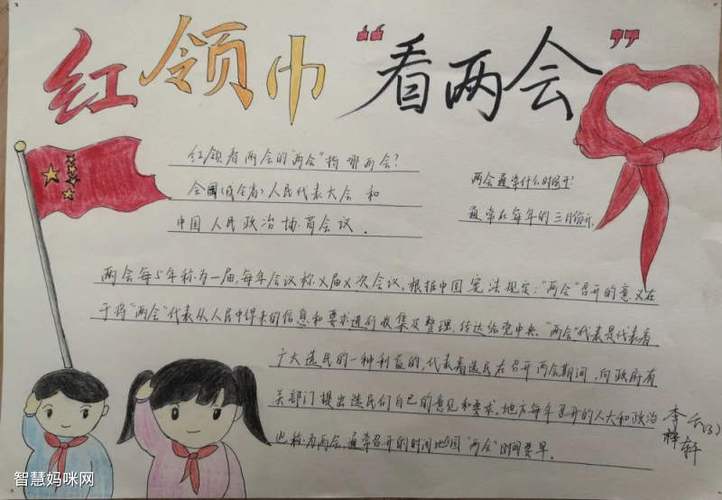 红领巾“看两会”
红领看两会的“两会”指哪两会?
全国(或全省)人民代表大会 和
中国人民政治协商会议.
两会通常什么时候开?
通常在每年的三月份开.
两会每5年称为一届,每年会议称X届X次会议,根据中国宪法规定:“两会”召开的意义在
于将“两会”代表从人民中得来的信息和要求进行收集及整理,传达给党中央.“两会”代表是代表着
广大选民的一种利益的,代表着选民在召开两会期间,向政府有
关部门提出选民们自己的意见和要求.地方每年召开的人大和政治
也称为两会,通常召开的时间比全国“两会”时间要早.
李梓轩
(3)
智慧妈咪网